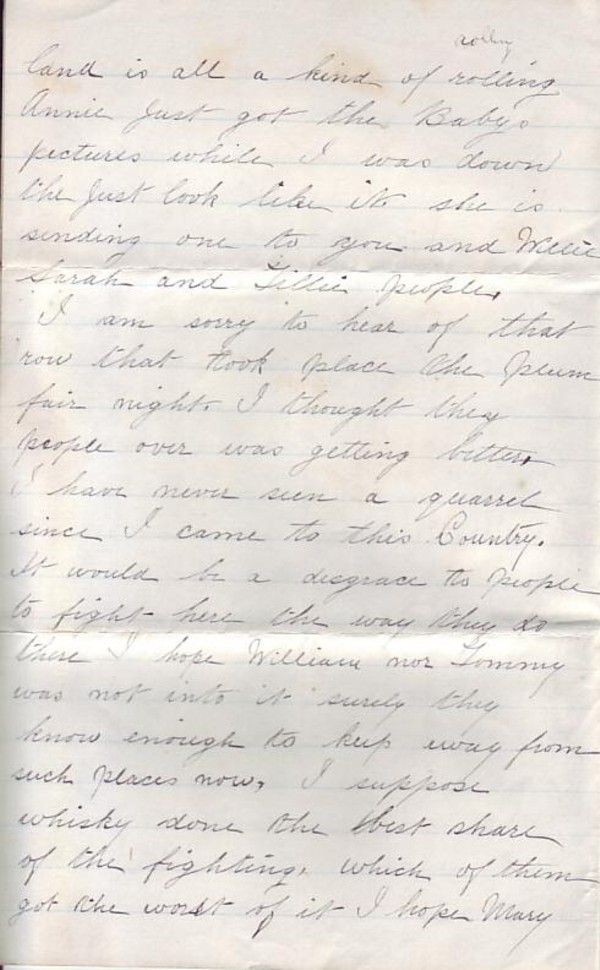 rolling
land is all a kind of rolling
Annie just got the Babys
pictures while I was down
the just look like it she is
sending one to you and Willie
Sarah and Tillie people,
I am sorry to hear of that
row that took place the plum
fair night. I thought they
people over was getting better,
I have never seen a quarrel
since I came to this Country.
It would be a disgrace to people
to fight here the way they do
there I hope William nor Tommy
was not into it surely they
know enough to keep away from
such places now, I suppose
whisky done the best share
of the fighting. which of them
got the worst of it I hope Mary